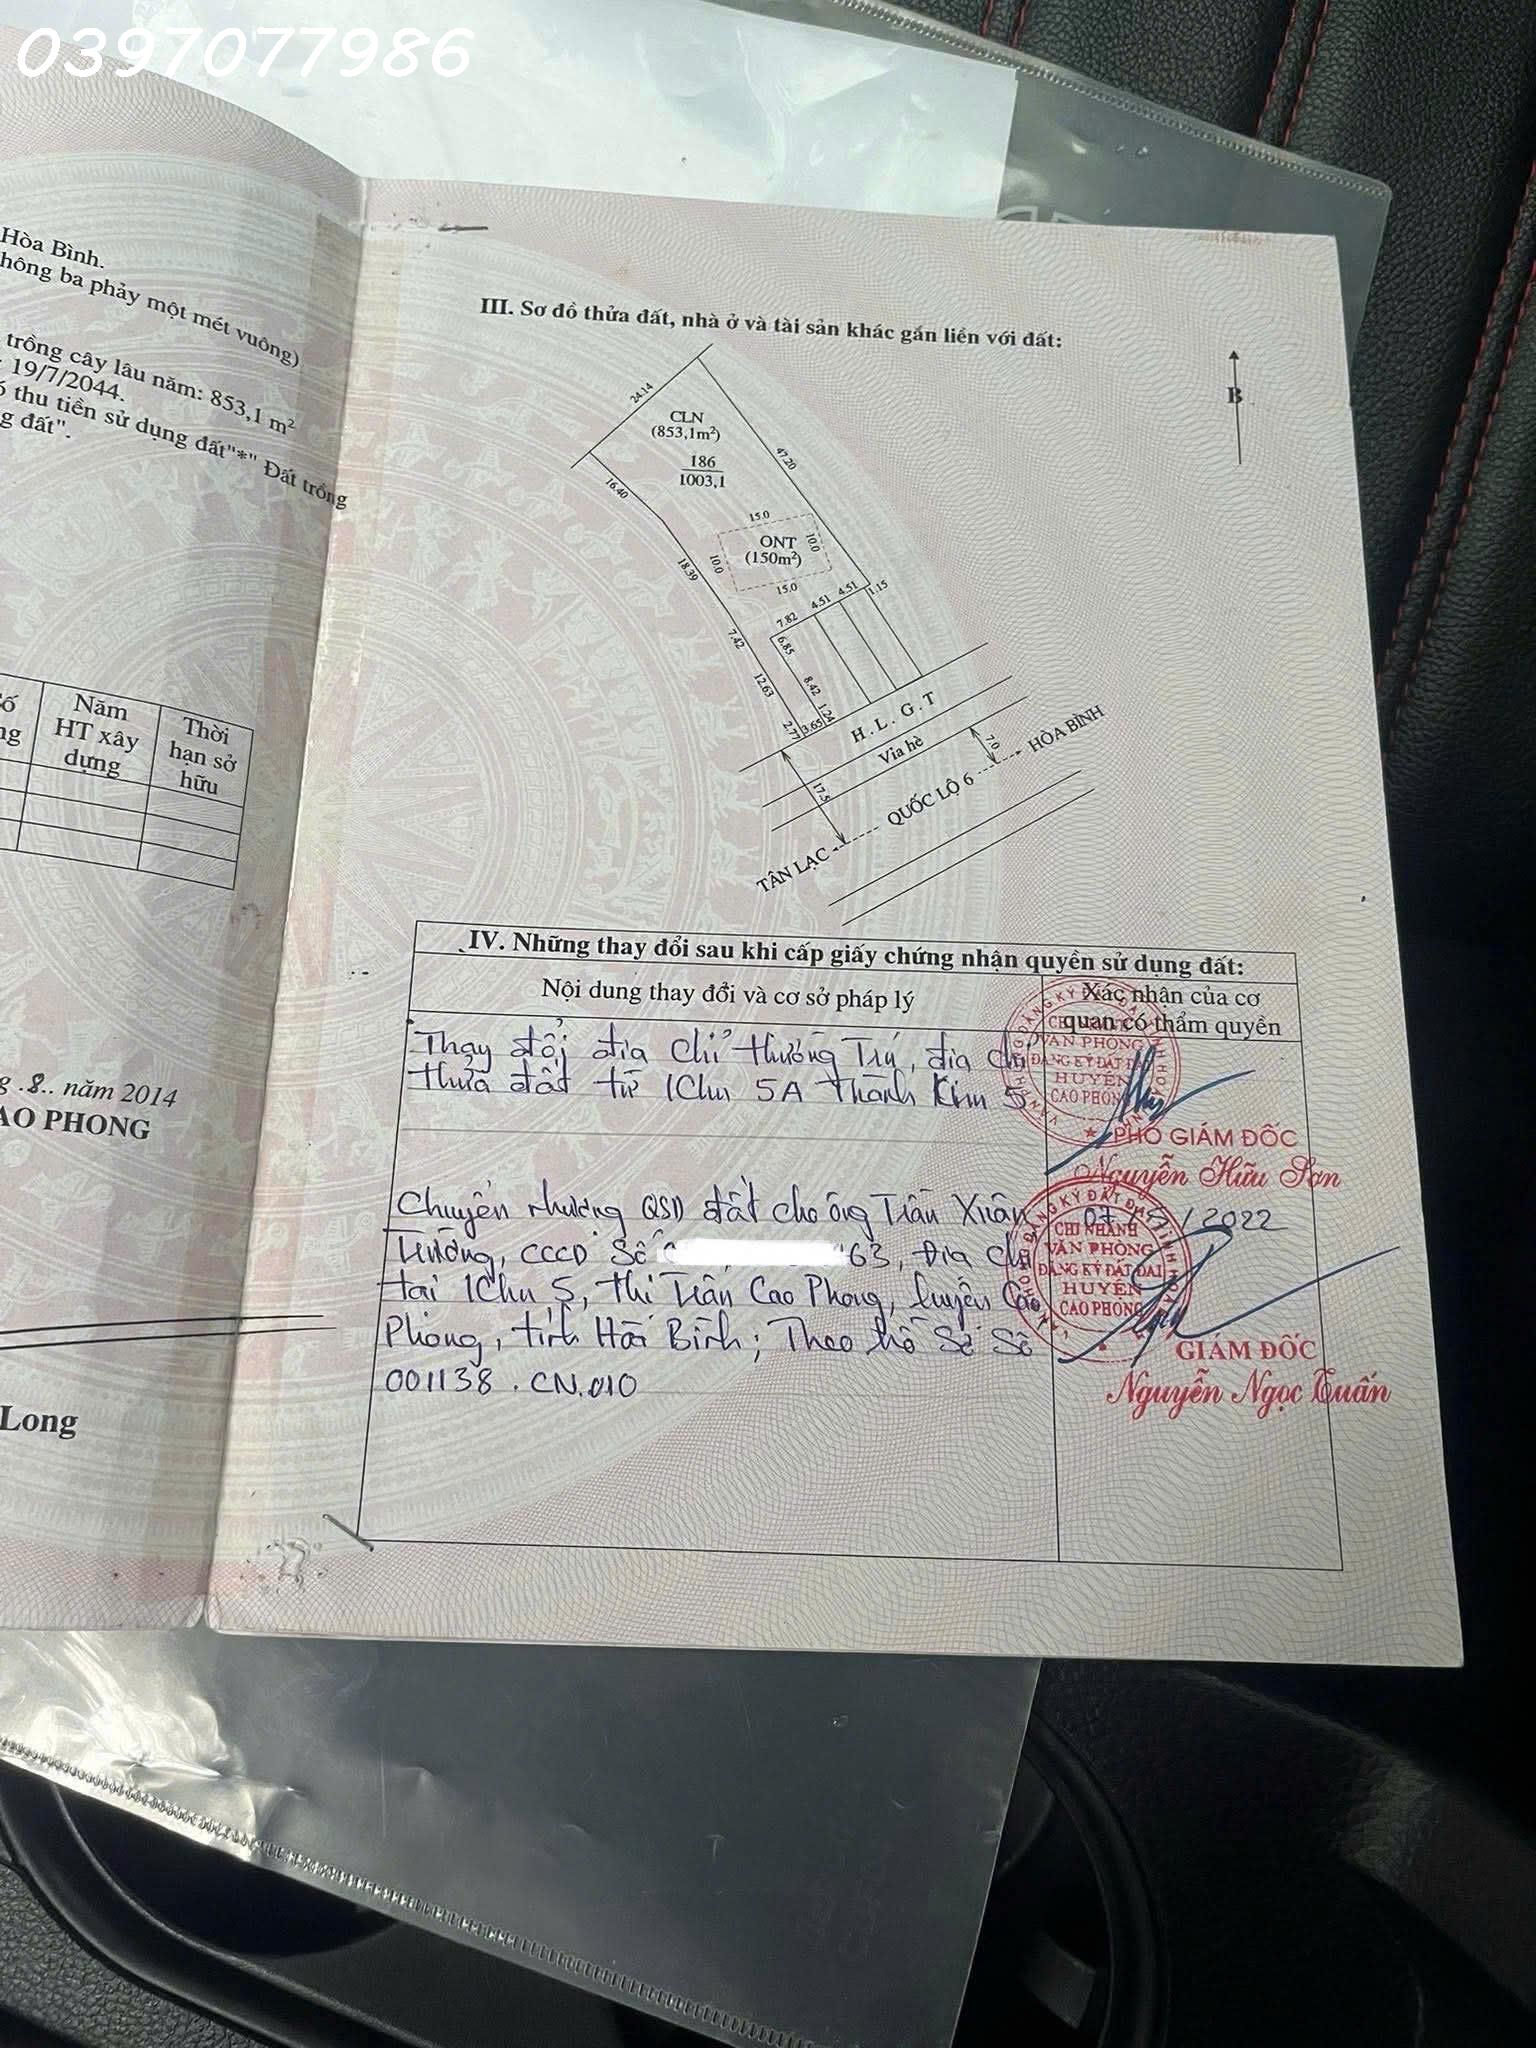 0397077986
Hòa Bình.
hông ba phảy một mét vuông)
trồng cây lâu năm: 853,1 m²
19/7/2044.
ó thu tiền sử dụng đất"*" Đất trồng
g đất".
Năm HT xây dựng
Thời hạn sở hữu
g .8.. năm 2014
AO PHONG
Long
III. Sơ đồ thửa đất, nhà ở và tài sản khác gắn liền với đất:
B
24.14
CLN
(853,1m²)
186
1003,1
47.20
16.40
15.0
ONT
(150m²)
10.0
10.0
15.0
18.39
7.82
4.51
4.51
1.15
7.42
6.85
12.63
8.42
1.24
2.77
3.65
H.L.G.T
Vỉa hè
7.0
HÒA BÌNH
17.5
QUỐC LỘ 6
TÂN LẠC
IV. Những thay đổi sau khi cấp giấy chứng nhận quyền sử dụng đất:
Nội dung thay đổi và cơ sở pháp lý
Xác nhận của cơ
quan có thẩm quyền
Thay đổi địa chỉ thường Trú, địa chỉ
thửa đất từ Khu 5A Thành Khu 5
CHI NHÁNH
VĂN PHÒNG
ĐĂNG KÝ ĐẤT ĐAI
HUYỆN
CAO PHONG
PHÓ GIÁM ĐỐC
Nguyễn Hữu Sơn
Chuyển nhượng QSD đất cho ông Trần Xuân
Trường, CCCD Số 63, Địa chỉ
tại Khu 5, Thị Trấn Cao Phong, huyện Cao
Phong, tỉnh Hòa Bình; Theo hồ Sơ Số
001138.CN.010
2022
CHI NHÁNH
VĂN PHÒNG
ĐĂNG KÝ ĐẤT ĐAI
HUYỆN
CAO PHONG
GIÁM ĐỐC
Nguyễn Ngọc Tuấn